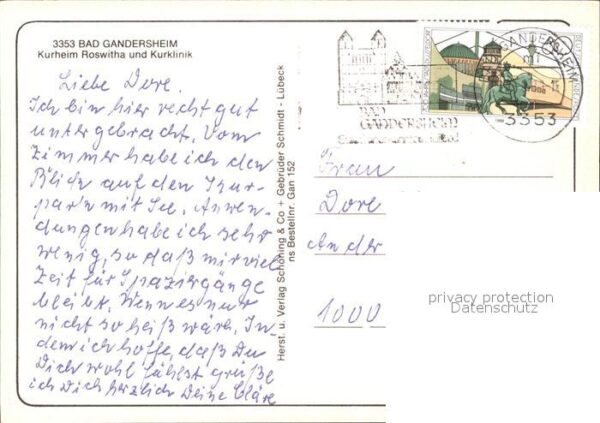 3353 BAD GANDERSHEIM
Kurheim Roswitha und Kurklinik
Liebe Dore.
Ich bin hier recht gut
untergebracht. Vom
Zimmer habe ich den
Blick auf den Kur-
park mit See. Anwen-
dungen habe ich sehr
wenig, so daß mir viel
Zeit für Spaziergänge
bleibt. Wenn es nur
nicht so heiß wäre. In-
dem ich hoffe, daß Du
Dich wohl fühlst grüße
ich Dich herzlich Deine Cläre
Herst. u. Verlag Schöning & Co + Gebrüder Schmidt - Lübeck
ns Bestellnr. Gan 152
BAD
GANDERSHEIM
GANDERSHEIM
-3353
Frau
Dore
An der
1000
privacy protection
Datenschutz